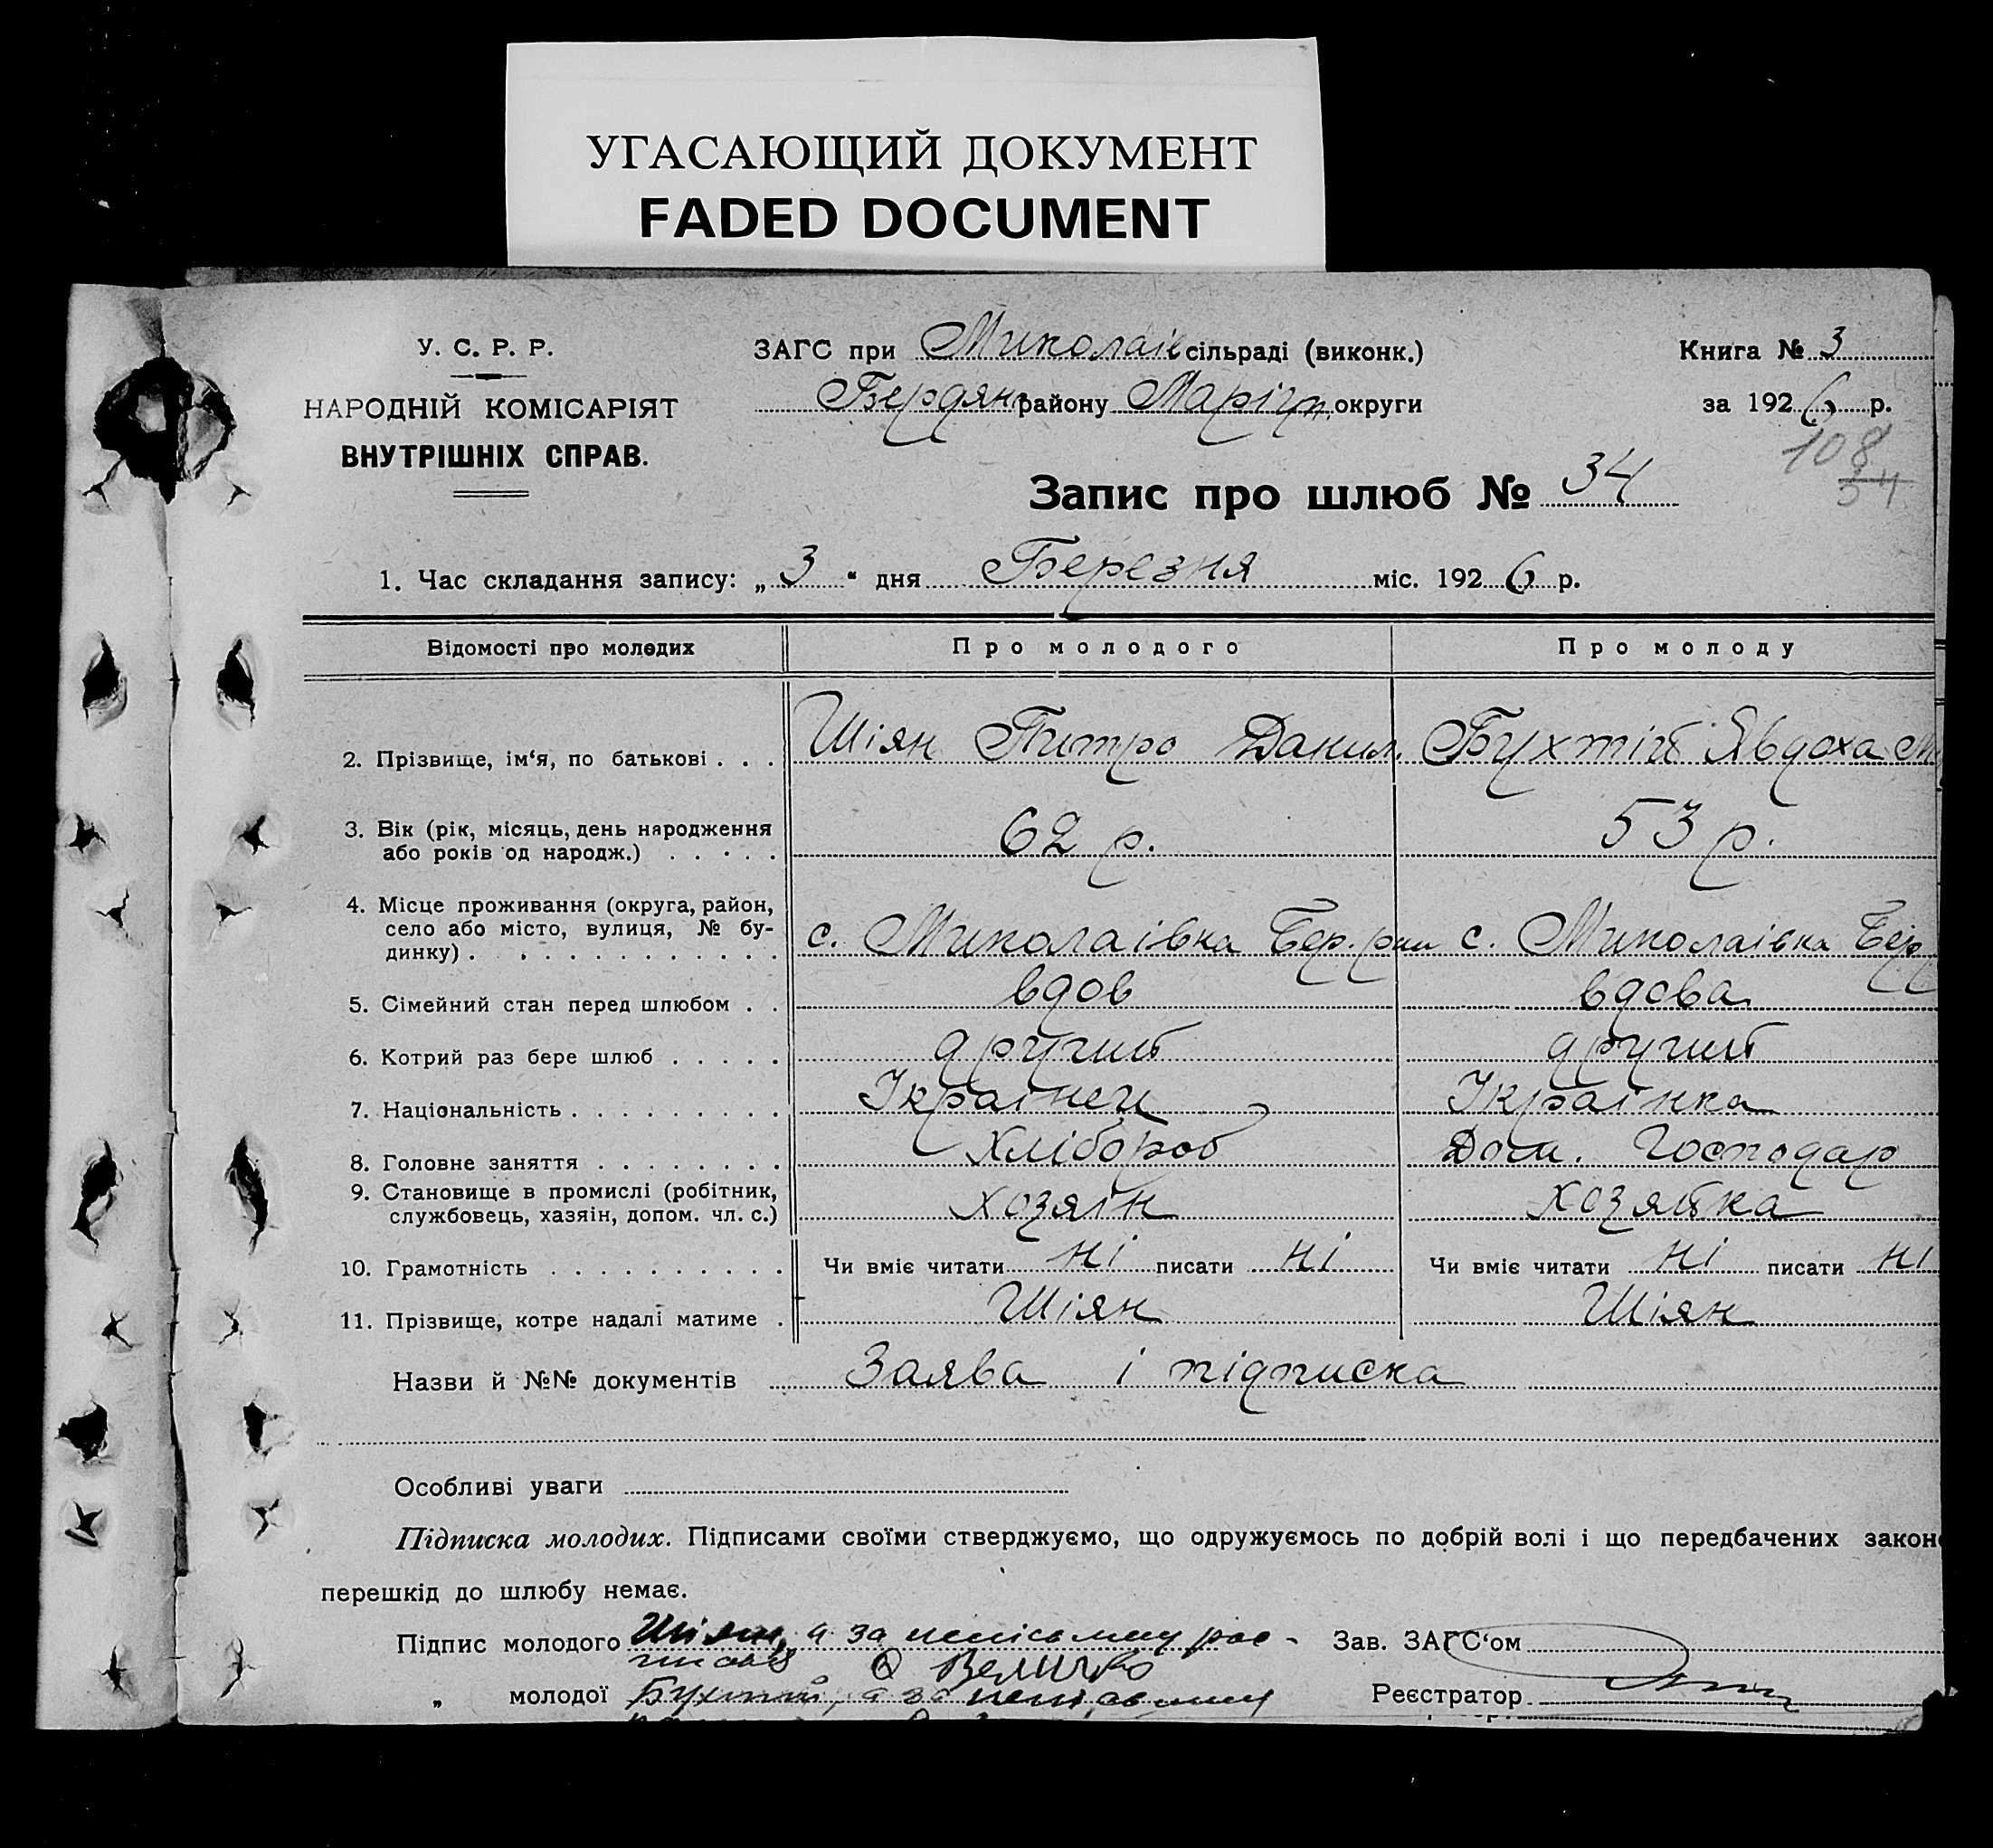 УГАСАЮЩИЙ ДОКУМЕНТ
FADED DOCUMENT
У. С. Р. Р.
НАРОДНІЙ КОМІСАРІЯТ
ВНУТРІШНІХ СПРАВ.
ЗАГС при Миколаів сільраді (виконк.)
Бердян району Маріуп. округи
Книга № 3
за 1926 р.
108
34
Запис про шлюб № 34
1. Час складання запису: „3“ дня Березня міс. 1926 р.
Відомості про молодих Про молодого Про молоду
2. Прізвище, ім‘я, по батькові . . . Шіян Питро Данил. Бухтій Явдоха М
3. Вік (рік, місяць, день народження
або років од народж.) . . . . . 62 р. 53 р.
4. Місце проживання (округа, район,
село або місто, вулиця, № бу-
динку) . . . . . . . . . . . . с. Миколаівка Бер. рай с. Миколаівка Бер
5. Сімейний стан перед шлюбом . . вдов вдова
6. Котрий раз бере шлюб . . . . . другий другий
7. Національність . . . . . . . . . Українець Українка
8. Головне заняття . . . . . . . . Хлібороб Дом. Господар
9. Становище в промислі (робітник,
службовець, хазяін, допом. чл. с.) хозяін хозяйка
10. Грамотність . . . . . . . . . . Чи вміє читати ні писати ні Чи вміє читати ні писати ні
11. Прізвище, котре надалі матиме . Шіян Шіян
Назви й №№ документів Заява і підписка
Особливі уваги
Підписка молодих. Підписами своїми стверджуємо, що одружуємось по добрій волі і що передбачених закон
перешкід до шлюбу немає.
Підпис молодого Шіян, а за неписьмену рос- Зав. ЗАГС‘ом
О Величко
„ молодої Бухтий, а за Реєстратор